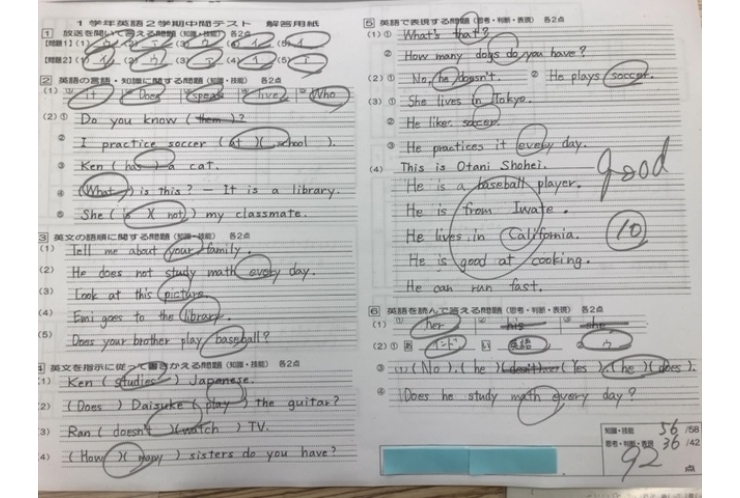 1学年英語2学期中間テスト 解答用紙
1 放送を聞いて答える問題(知識・技能) 各2点
【問題1】(1) ウ (2) ア (3) ウ (4) イ (5) イ
【問題2】(1) イ (2) ウ (3) イ (4) イ (5) ア
2 英語の言語・知識に関する問題(知識・技能) 各2点
(1) ① it ② Does ③ speak ④ live ⑤ Who
(2) ① Do you know ( them )?
② I practice soccer ( at )( school ).
③ Ken ( has ) a cat.
④ (What) is this? – It is a library.
⑤ She ( is )( not ) my classmate.
3 英文の語順に関する問題(知識・技能) 各2点
Tell me about your family.
(2) He does not study math every day.
(3) Look at this picture.
(4) Emi goes to the library.
(5) Does your brother play baseball?
4 英文を指示に従って書きかえる問題(知識・技能) 各2点
(1) Ken ( studies ) Japanese.
(2) ( Does ) Daisuke ( play ) the guitar?
(3) Ran ( doesn't )( watch ) TV.
(4) ( How )( many ) sisters do you have?
5 英語で表現する問題(思考・判断・表現) 各2点
(1) ① What's that?
② How many dogs do you have?
(2) ① No, he doesn't. ② He plays soccer.
(3) ① She lives in Tokyo.
② He likes soccer.
③ He practices it every day.
(4) This is Otani Shohei.
He is a baseball player.
He is from Iwate.
He lives in California.
He is good at cooking.
He can run fast.
good
10
6 英語を読んで答える問題(思考・判断・表現) 各2点
(1) ① her ② his ③ she
(2) ① あ インド い 英語 う
③ (No), ( he )( doesn't ) (Yes ), ( he )( does ).
④ Does he study math every day?
知識・技能 56 /58
思考・判断・表現 36 /42
92 点